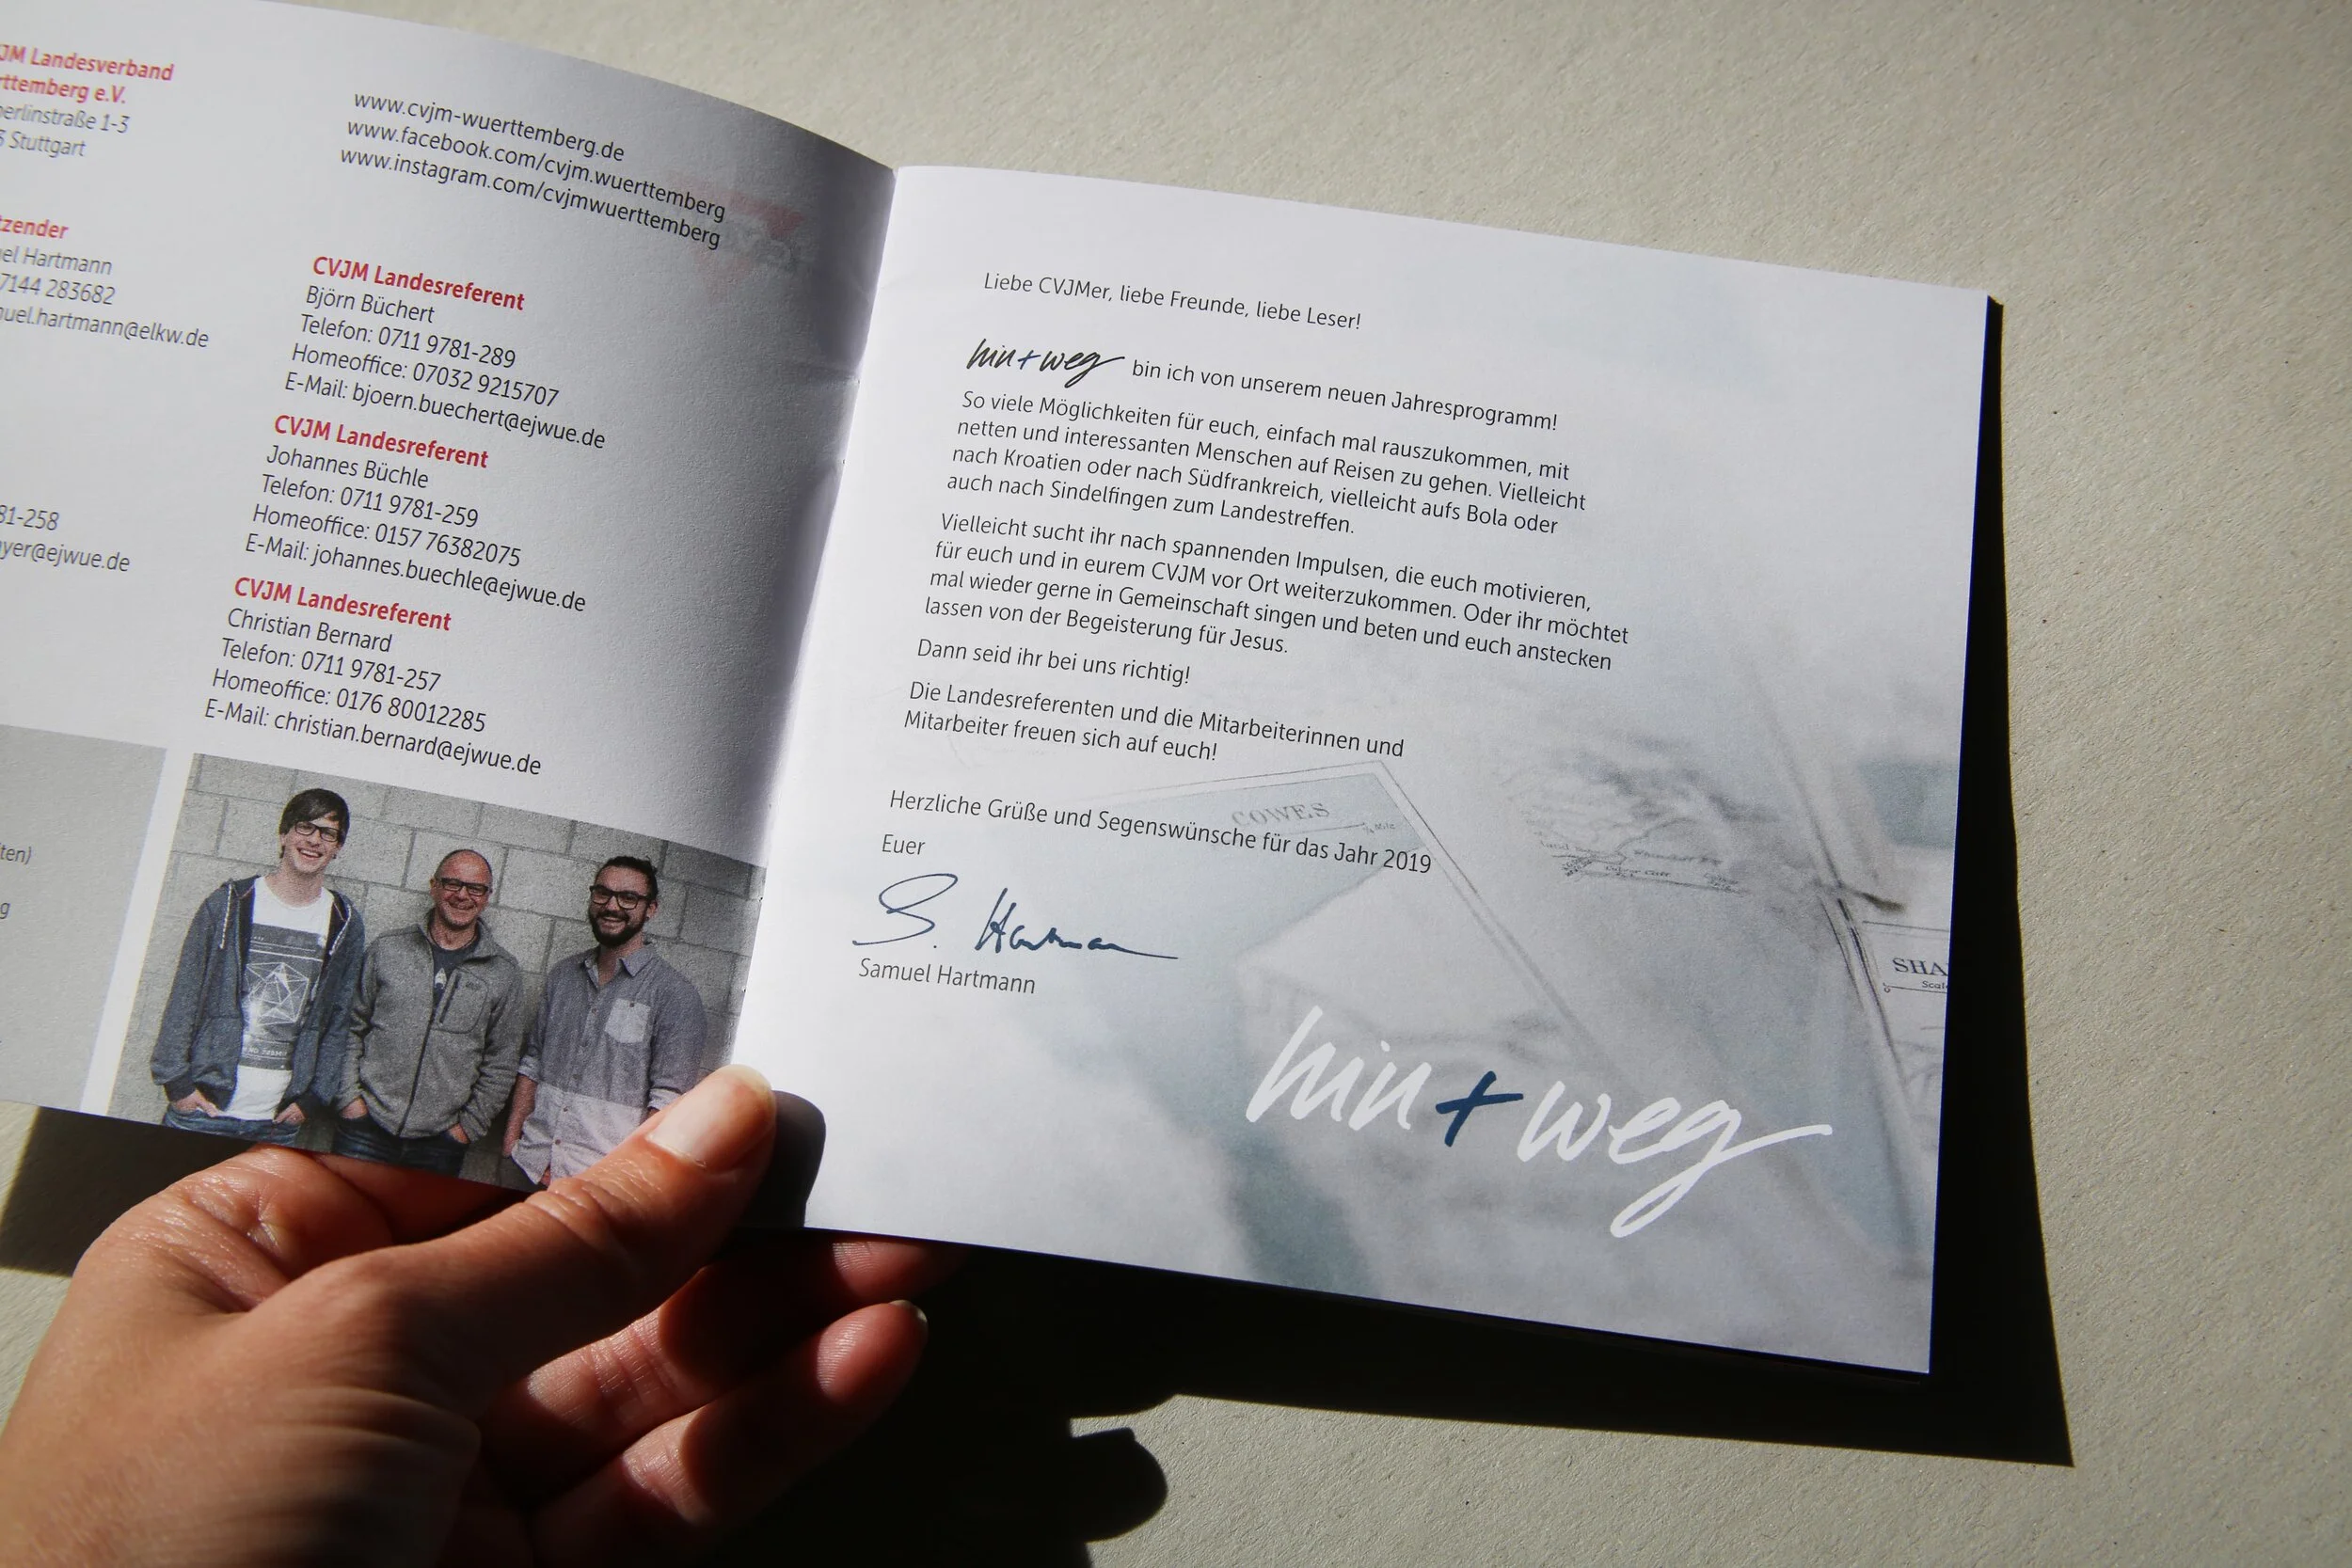 Landesverband
e.V.
1-3
Stuttgart
Hartmann
7144 283682
@elkw.de
-258
@ejwue.de
www.cvjm-wuerttemberg.de
www.facebook.com/cvjm.wuerttemberg
www.instagram.com/cvjmwuerttemberg
CVJM Landesreferent
Björn Büchert
Telefon: 0711 9781-289
Homeoffice: 07032 9215707
E-Mail: bjoern.buechert@ejwue.de
CVJM Landesreferent
Johannes Büchle
Telefon: 0711 9781-259
Homeoffice: 0157 76382075
E-Mail: johannes.buechle@ejwue.de
CVJM Landesreferent
Christian Bernard
Telefon: 0711 9781-257
Homeoffice: 0176 80012285
E-Mail: christian.bernard@ejwue.de
Liebe CVJMer, liebe Freunde, liebe Leser!
hin+weg bin ich von unserem neuen Jahresprogramm!
So viele Möglichkeiten für euch, einfach mal rauszukommen, mit
netten und interessanten Menschen auf Reisen zu gehen. Vielleicht
nach Kroatien oder nach Südfrankreich, vielleicht aufs Bola oder
auch nach Sindelfingen zum Landestreffen.
Vielleicht sucht ihr nach spannenden Impulsen, die euch motivieren,
für euch und in eurem CVJM vor Ort weiterzukommen. Oder ihr möchtet
mal wieder gerne in Gemeinschaft singen und beten und euch anstecken
lassen von der Begeisterung für Jesus.
Dann seid ihr bei uns richtig!
Die Landesreferenten und die Mitarbeiterinnen und
Mitarbeiter freuen sich auf euch!
COWES
Herzliche Grüße und Segenswünsche für das Jahr 2019
Euer
S. Hartmann
Samuel Hartmann
SHA
hin+weg